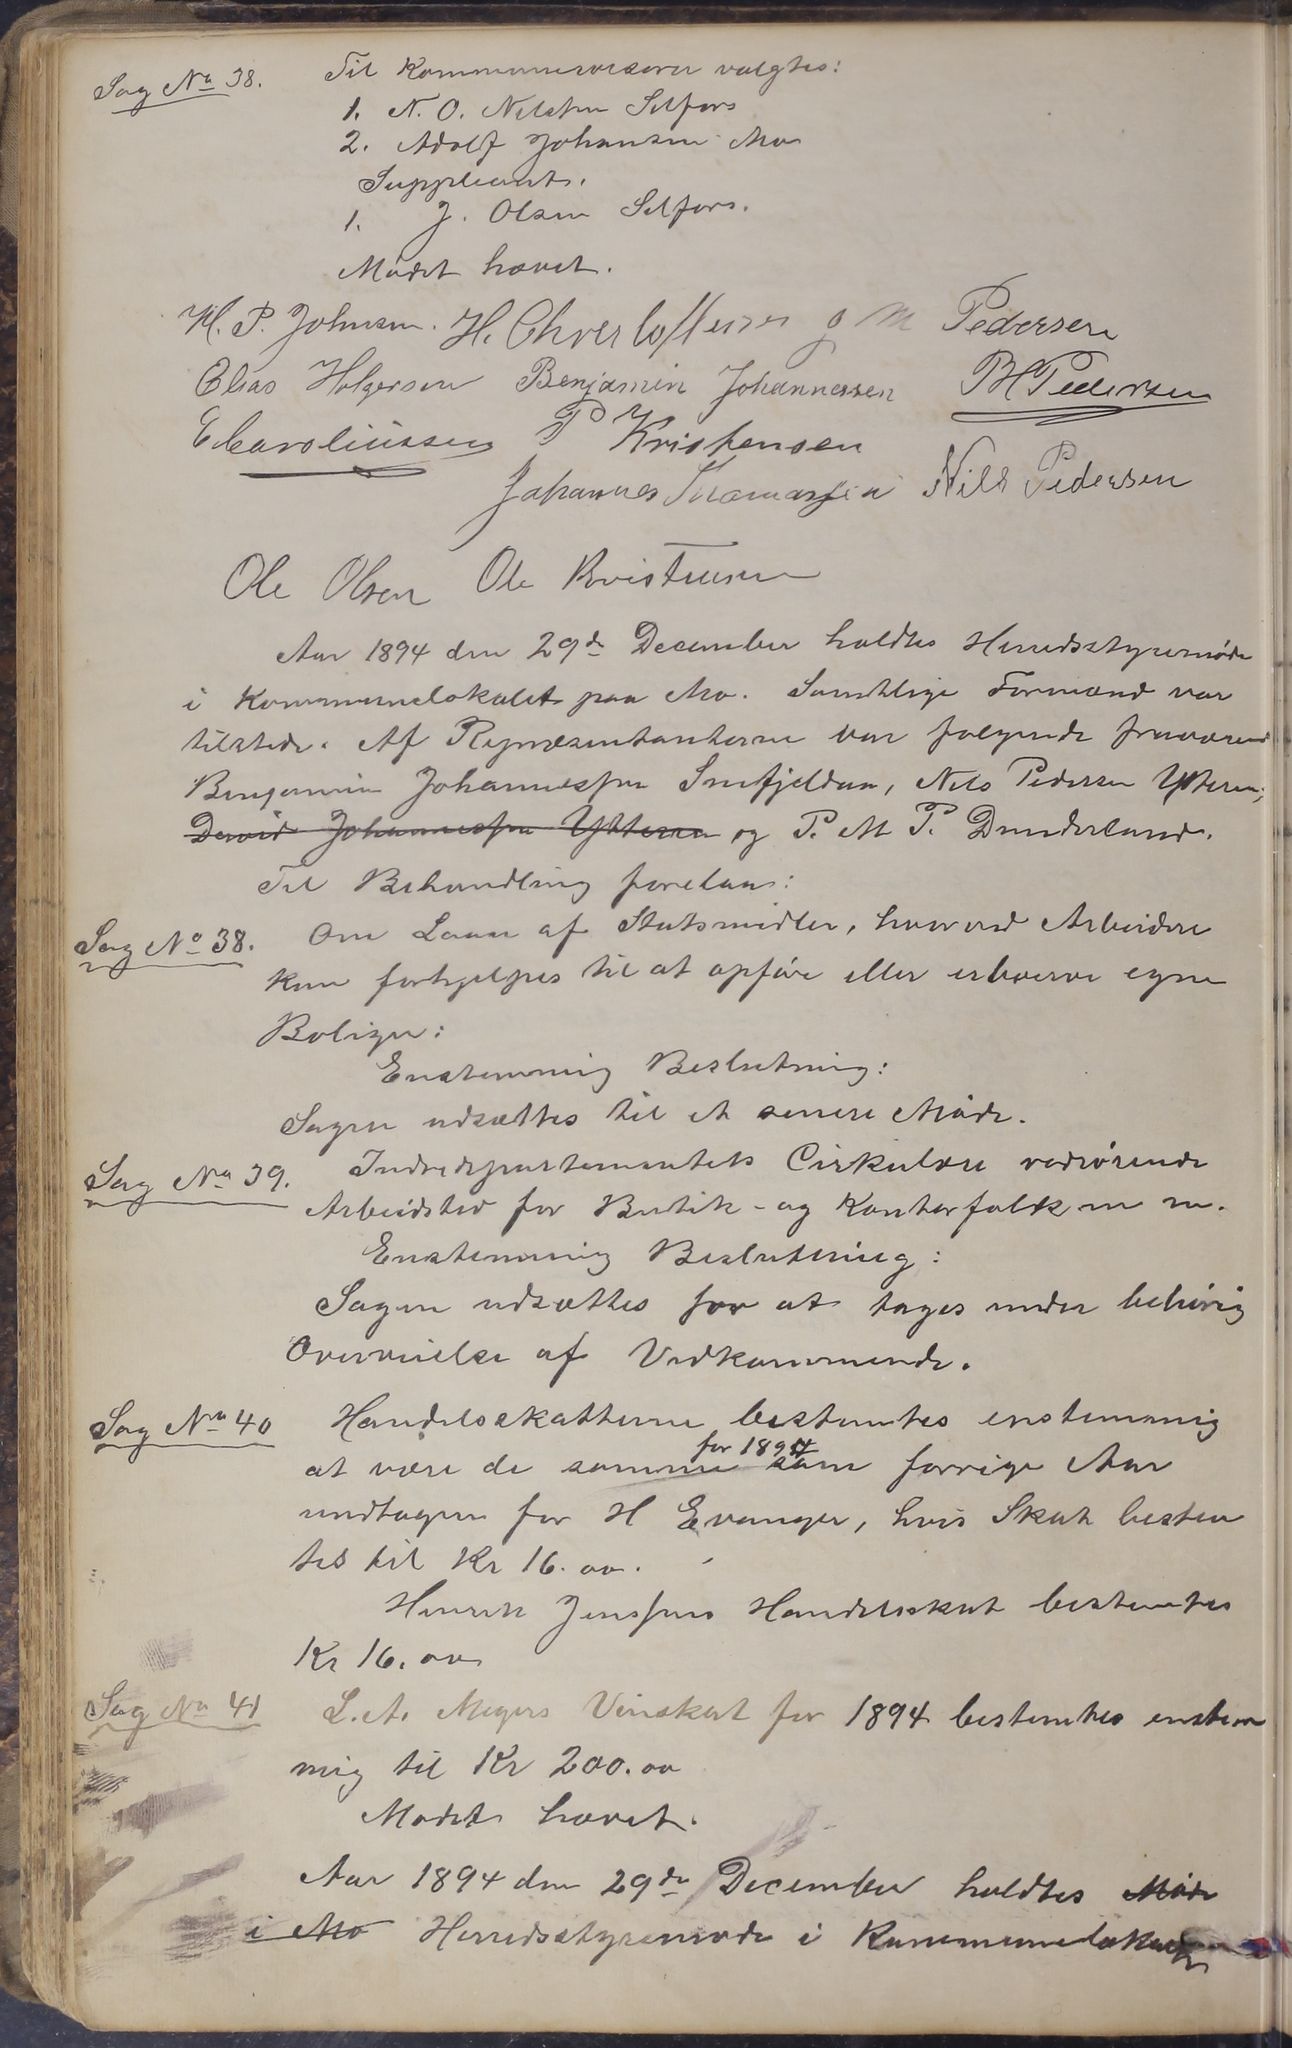 Sag No 38. Til Kommunerevisorer valgtes:
1. N. O. Nilsen Selfors
2. Adolf Johansen Mo
Suppleant.
1. J. Olsen Selfors.
Mødet hævet.
H. P. Johnsen. H. Chr Toffensen J M Pedersen
Elias Holgersen Benjamin Johannessen P H Pedersen
E Caroliussen P Kristensen
Johannes Thomassen Nils Pedersen
Ole Olsen Ole Kristensen
Aar 1894 den 29de December holdtes Herredsstyremøde
i Kommunelokalet paa Mo. Samtlige Formænd var
tilstede. Af Repræsentanterne var følgende fraværend
Benjamin Johannessen Snefjeldaa, Nils Pedersen Ytteren,
David Johannessen Ytteren og P. M. P. Dunderland.
Til Behandling forelaa:
Sag No 38. Om Laan af Statsmidler, hvorved Arbeidere
kan forhjelpes til at opføre eller erhverve egne
Boliger:
Enstemmig Beslutning:
Sagen udsættes til et senere Møde.
Sag No 39. Indredepartementets Cirkulære vedrørende
Arbeidstid for Butik- og Kontorfolk m m.
Enstemmig Beslutning:
Sagen udsættes for at tages under behørig
Overveielse af Vedkommende.
Sag No 40 Handelsskatterne bestemtes enstemmig
for 1894
at være de samme som forrige Aar
undtagen for H Evanger, hvis Skat bestem
tes til Kr 16.00.
Henrik Jensens Handelsskat bestemtes
Kr 16.00
Sag No 41 L. A. Meyers Vinskat for 1894 bestemtes enstem
mig til Kr 200.00
Mødet hævet.
Aar 1894 den 29de December holdtes Møde
i Mo Herredsstyremøde i Kommunelokalet